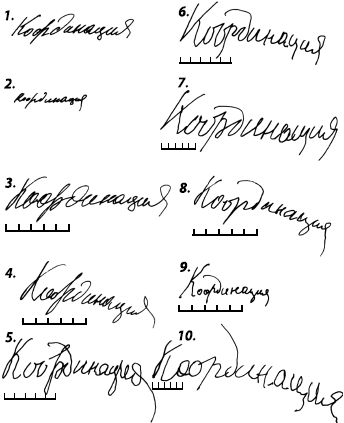 1. Координация
2. Координация
3. Координация
4. Координация
5. Координация
6. Координация
7. Координация
8. Координация
9. Координация
10. Координация